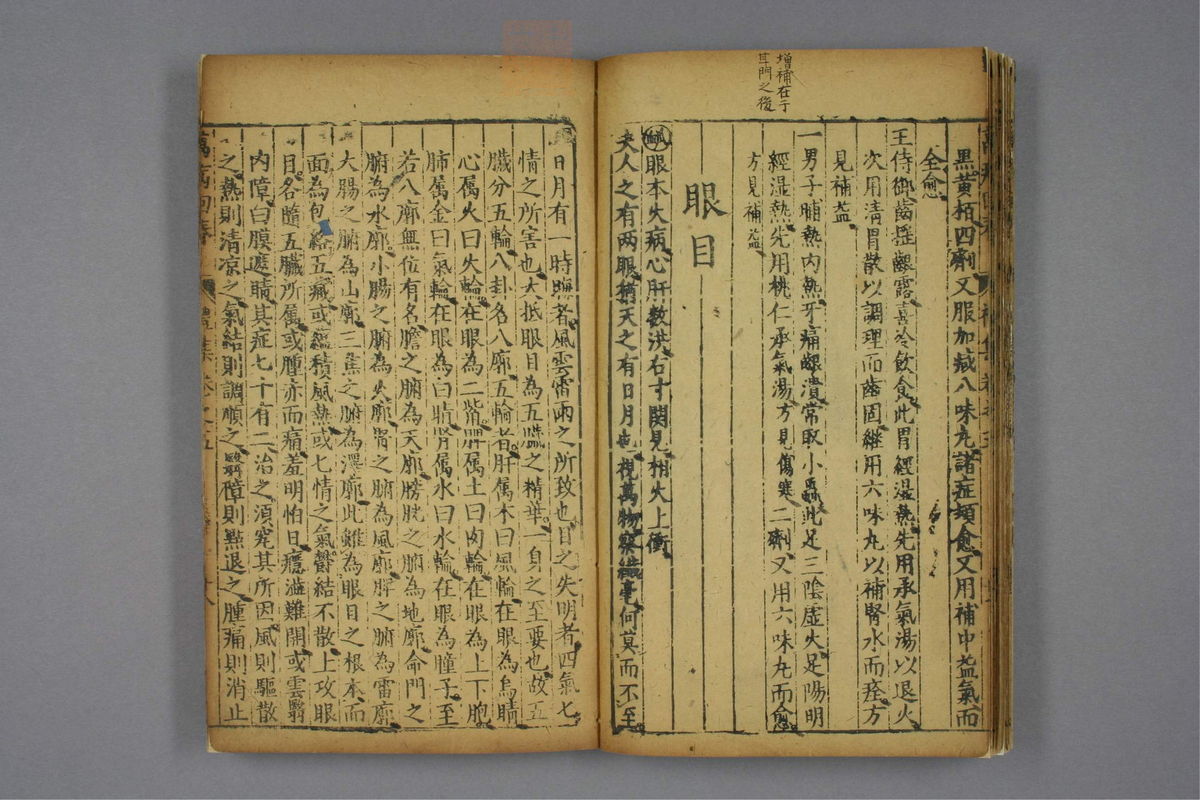 增補在于
耳門之後
黑黃栢四劑又服加減八味丸諸症頓愈又用補中益氣而
全愈
王侍御齒搖齦露喜冷飲食此胃經濕熱先用承氣湯以退火
次用清胃散以調理而齒固繼用六味丸以補腎水而痊方
見補益
一男子晡熱內熱牙痛齦潰常取小蟲此足三陰虛火足陽明
經濕熱先用桃仁承氣湯方見傷寒二劑又用六味丸而愈
方見補益
眼目
眼本火病心肝數洪右寸関見相火上衝
夫人之有两眼猶天之有日月也視萬物察纖毫何莫而不至
日月有一時晦者風雲雷雨之所致也目之失明者四氣七
情之所害也大抵眼目為五臟之精華一身之至要也故五
臟分五輪八卦名八廓五輪者肝属木曰風輪在眼為烏睛
心属火曰火輪在眼為二眥脾属土曰肉輪在眼為上下胞
肺属金曰氣輪在眼為白睛腎属水曰水輪在眼為瞳子至
若八廓無位有名膽之腑為天廓膀胱之腑為地廓命門之
腑為水廓小腸之腑為火廓腎之腑為風廓脾之腑為雷廓
大腸之腑為山廓三焦之腑為澤廓此雖為眼目之根本而
面為包絡五臟或蘊積風熱或七情之氣欝結不散上攻眼
目各隨五臟所属或腫赤而痛羞明怕日癮澁難開或雲翳
內障曰膜遮睛其症七十有二治之湏究其所因風則驅散
之熱則清凉之氣結則調順之翳障則點退之腫痛則消止
萬病回春